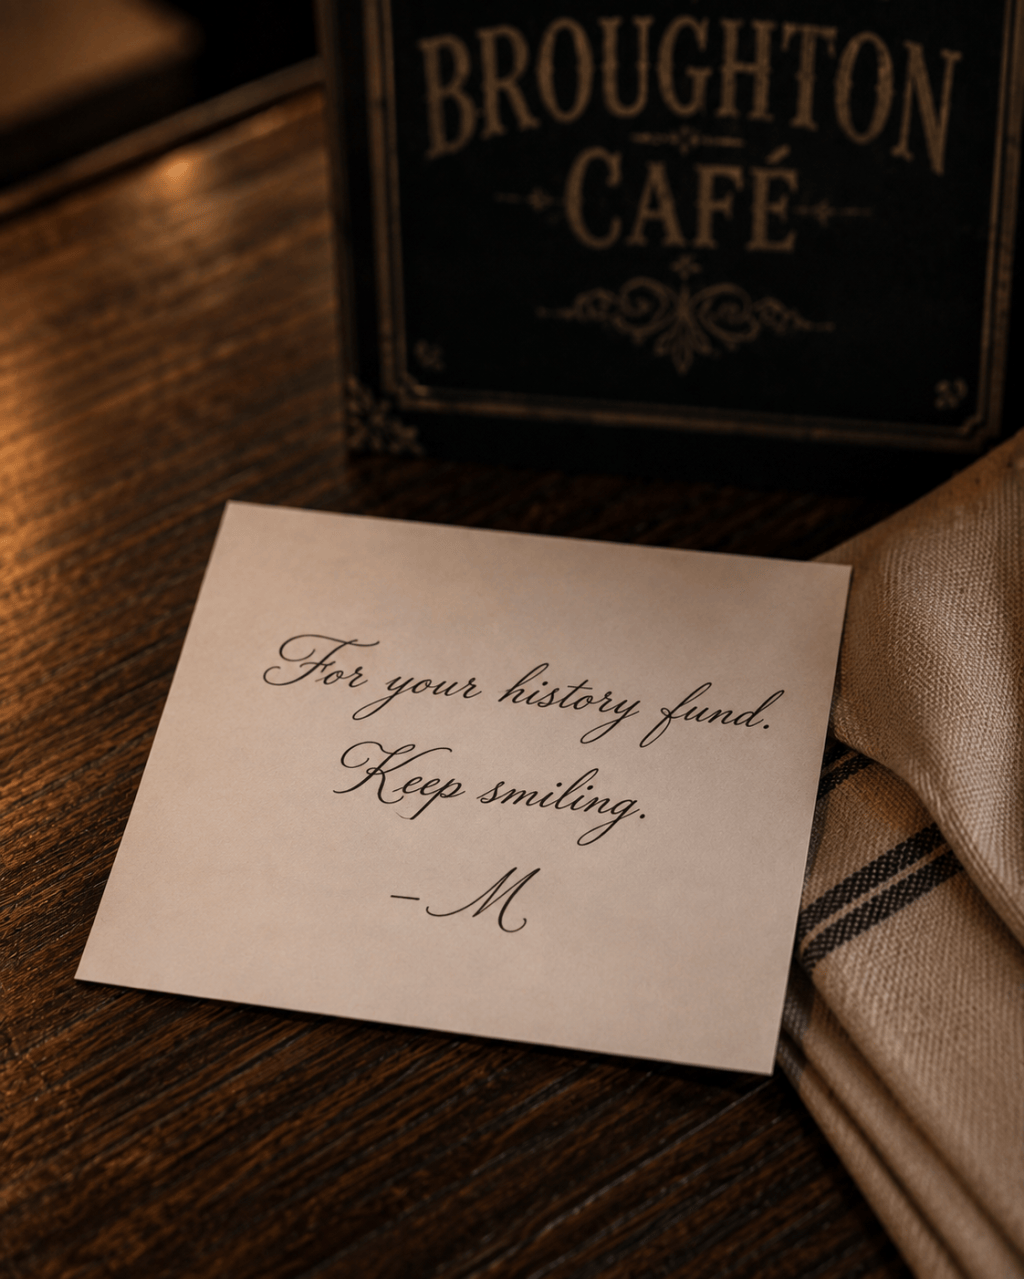 BROUGHTON
CAFÉ
For your history fund.
Keep smiling.
– M